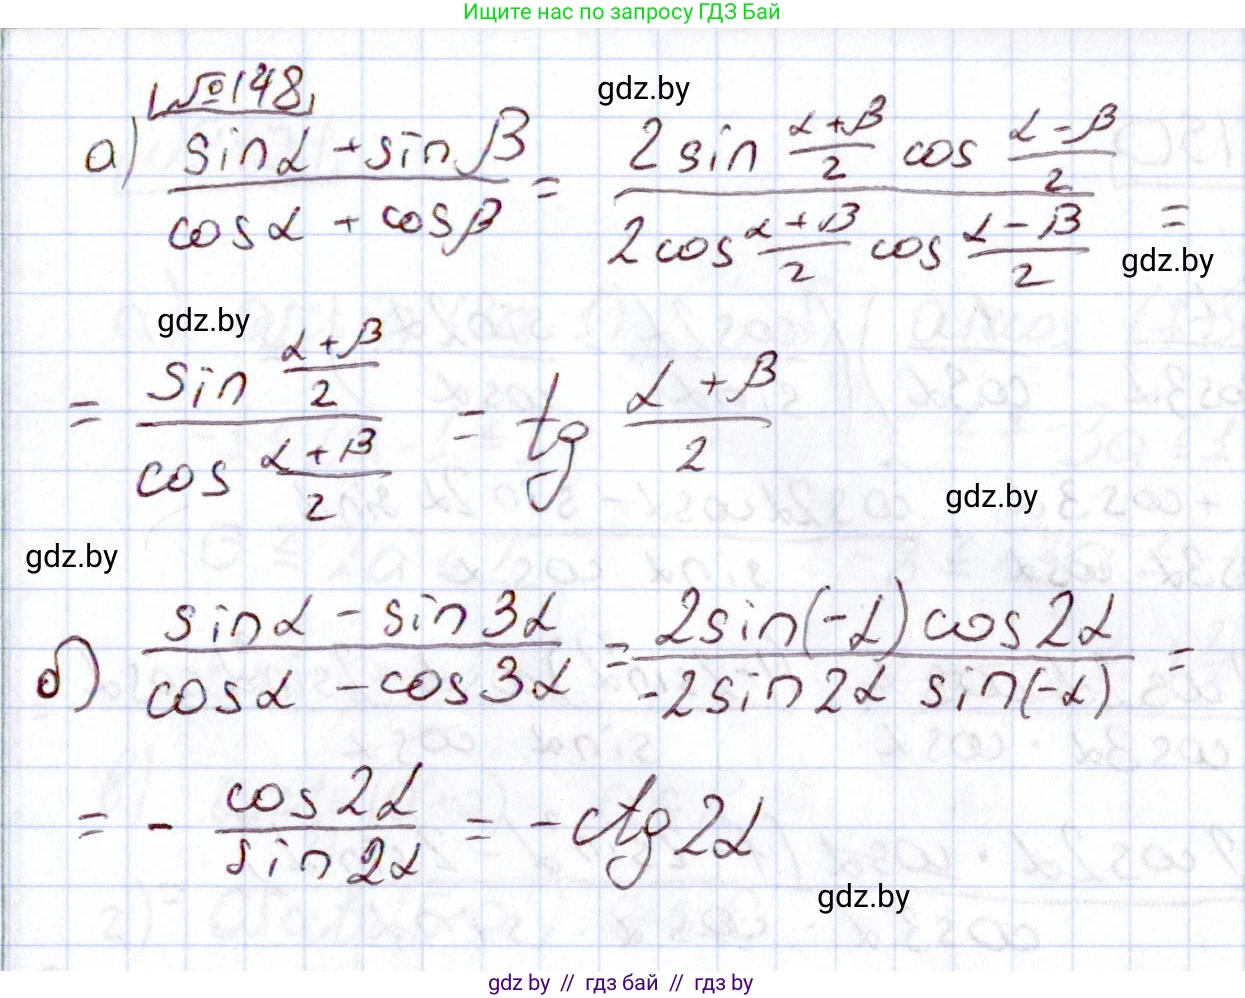 Ищите нас по запросу ГДЗ Бай
№148
gdz.by
а) (sinα + sinβ)/(cosα + cosβ) = (2sin (α+β)/2 cos (α−β)/2)/(2cos (α+β)/2 cos (α−β)/2) =
gdz.by
gdz.by
= (sin (α+β)/2)/(cos (α+β)/2) = tg (α+β)/2
gdz.by
gdz.by
б) (sinα − sin3α)/(cosα − cos3α) = (2sin(−α) cos2α)/(−2sin2α sin(−α)) =
= − cos2α/sin2α = −ctg2α
gdz.by
gdz by // гдз бай // гдз by